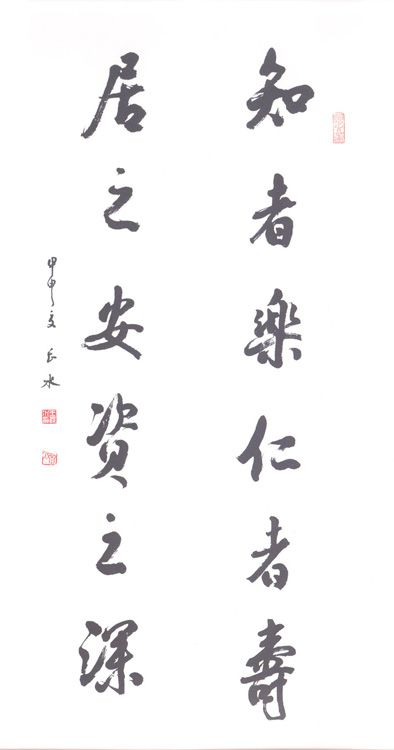 知者樂仁者壽
居之安資之深
甲申夏 岳水